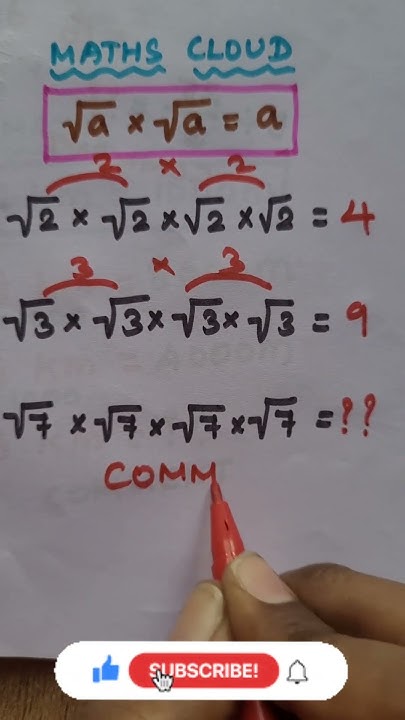 MATHS CLOUD
√a × √a = a
2 × 2
√2 × √2 × √2 × √2 = 4
3 × 3
√3 × √3 × √3 × √3 = 9
√7 × √7 × √7 × √7 = ??
COMM
SUBSCRIBE!